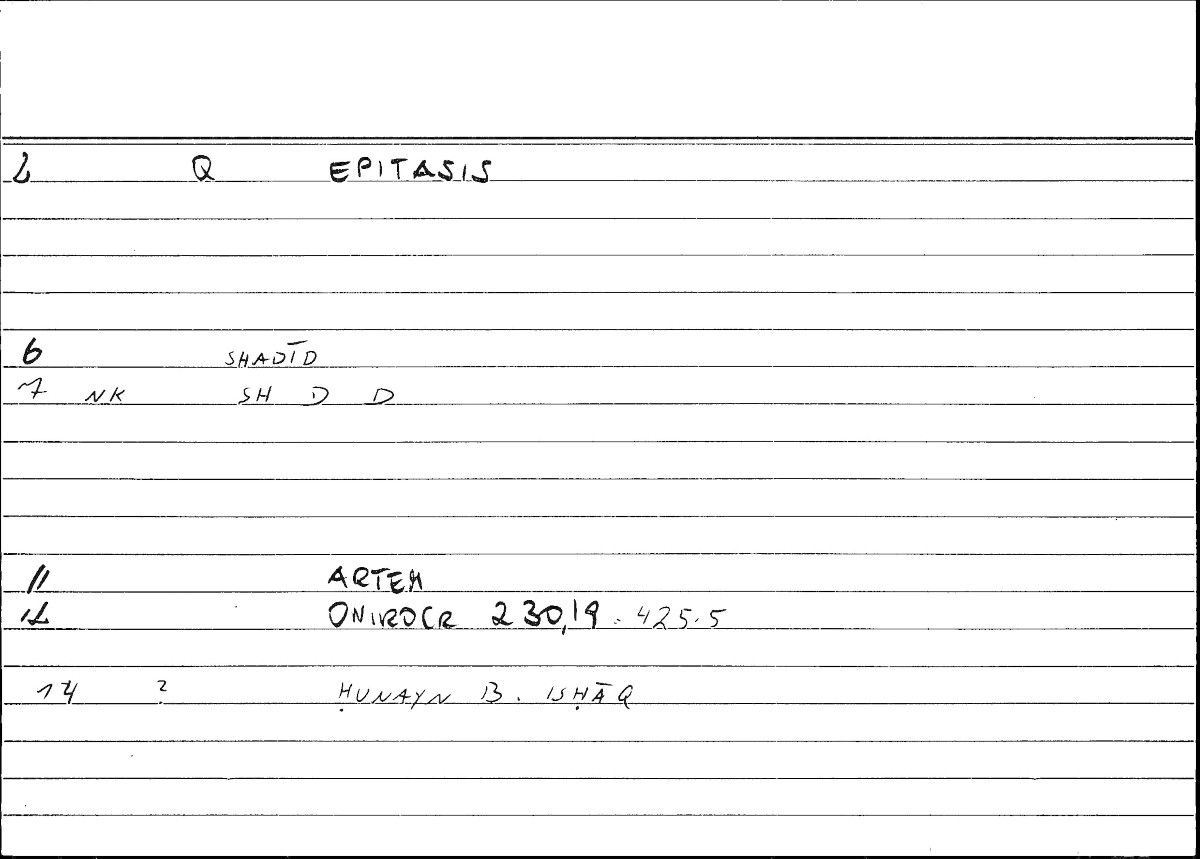 2 Q EPITASIS
6 SHADĪD
7 NK SH D D
11 ARTEM
12 ONIROCR 230,19 . 425.5
14 ? ḤUNAYN B. ISḤĀQ